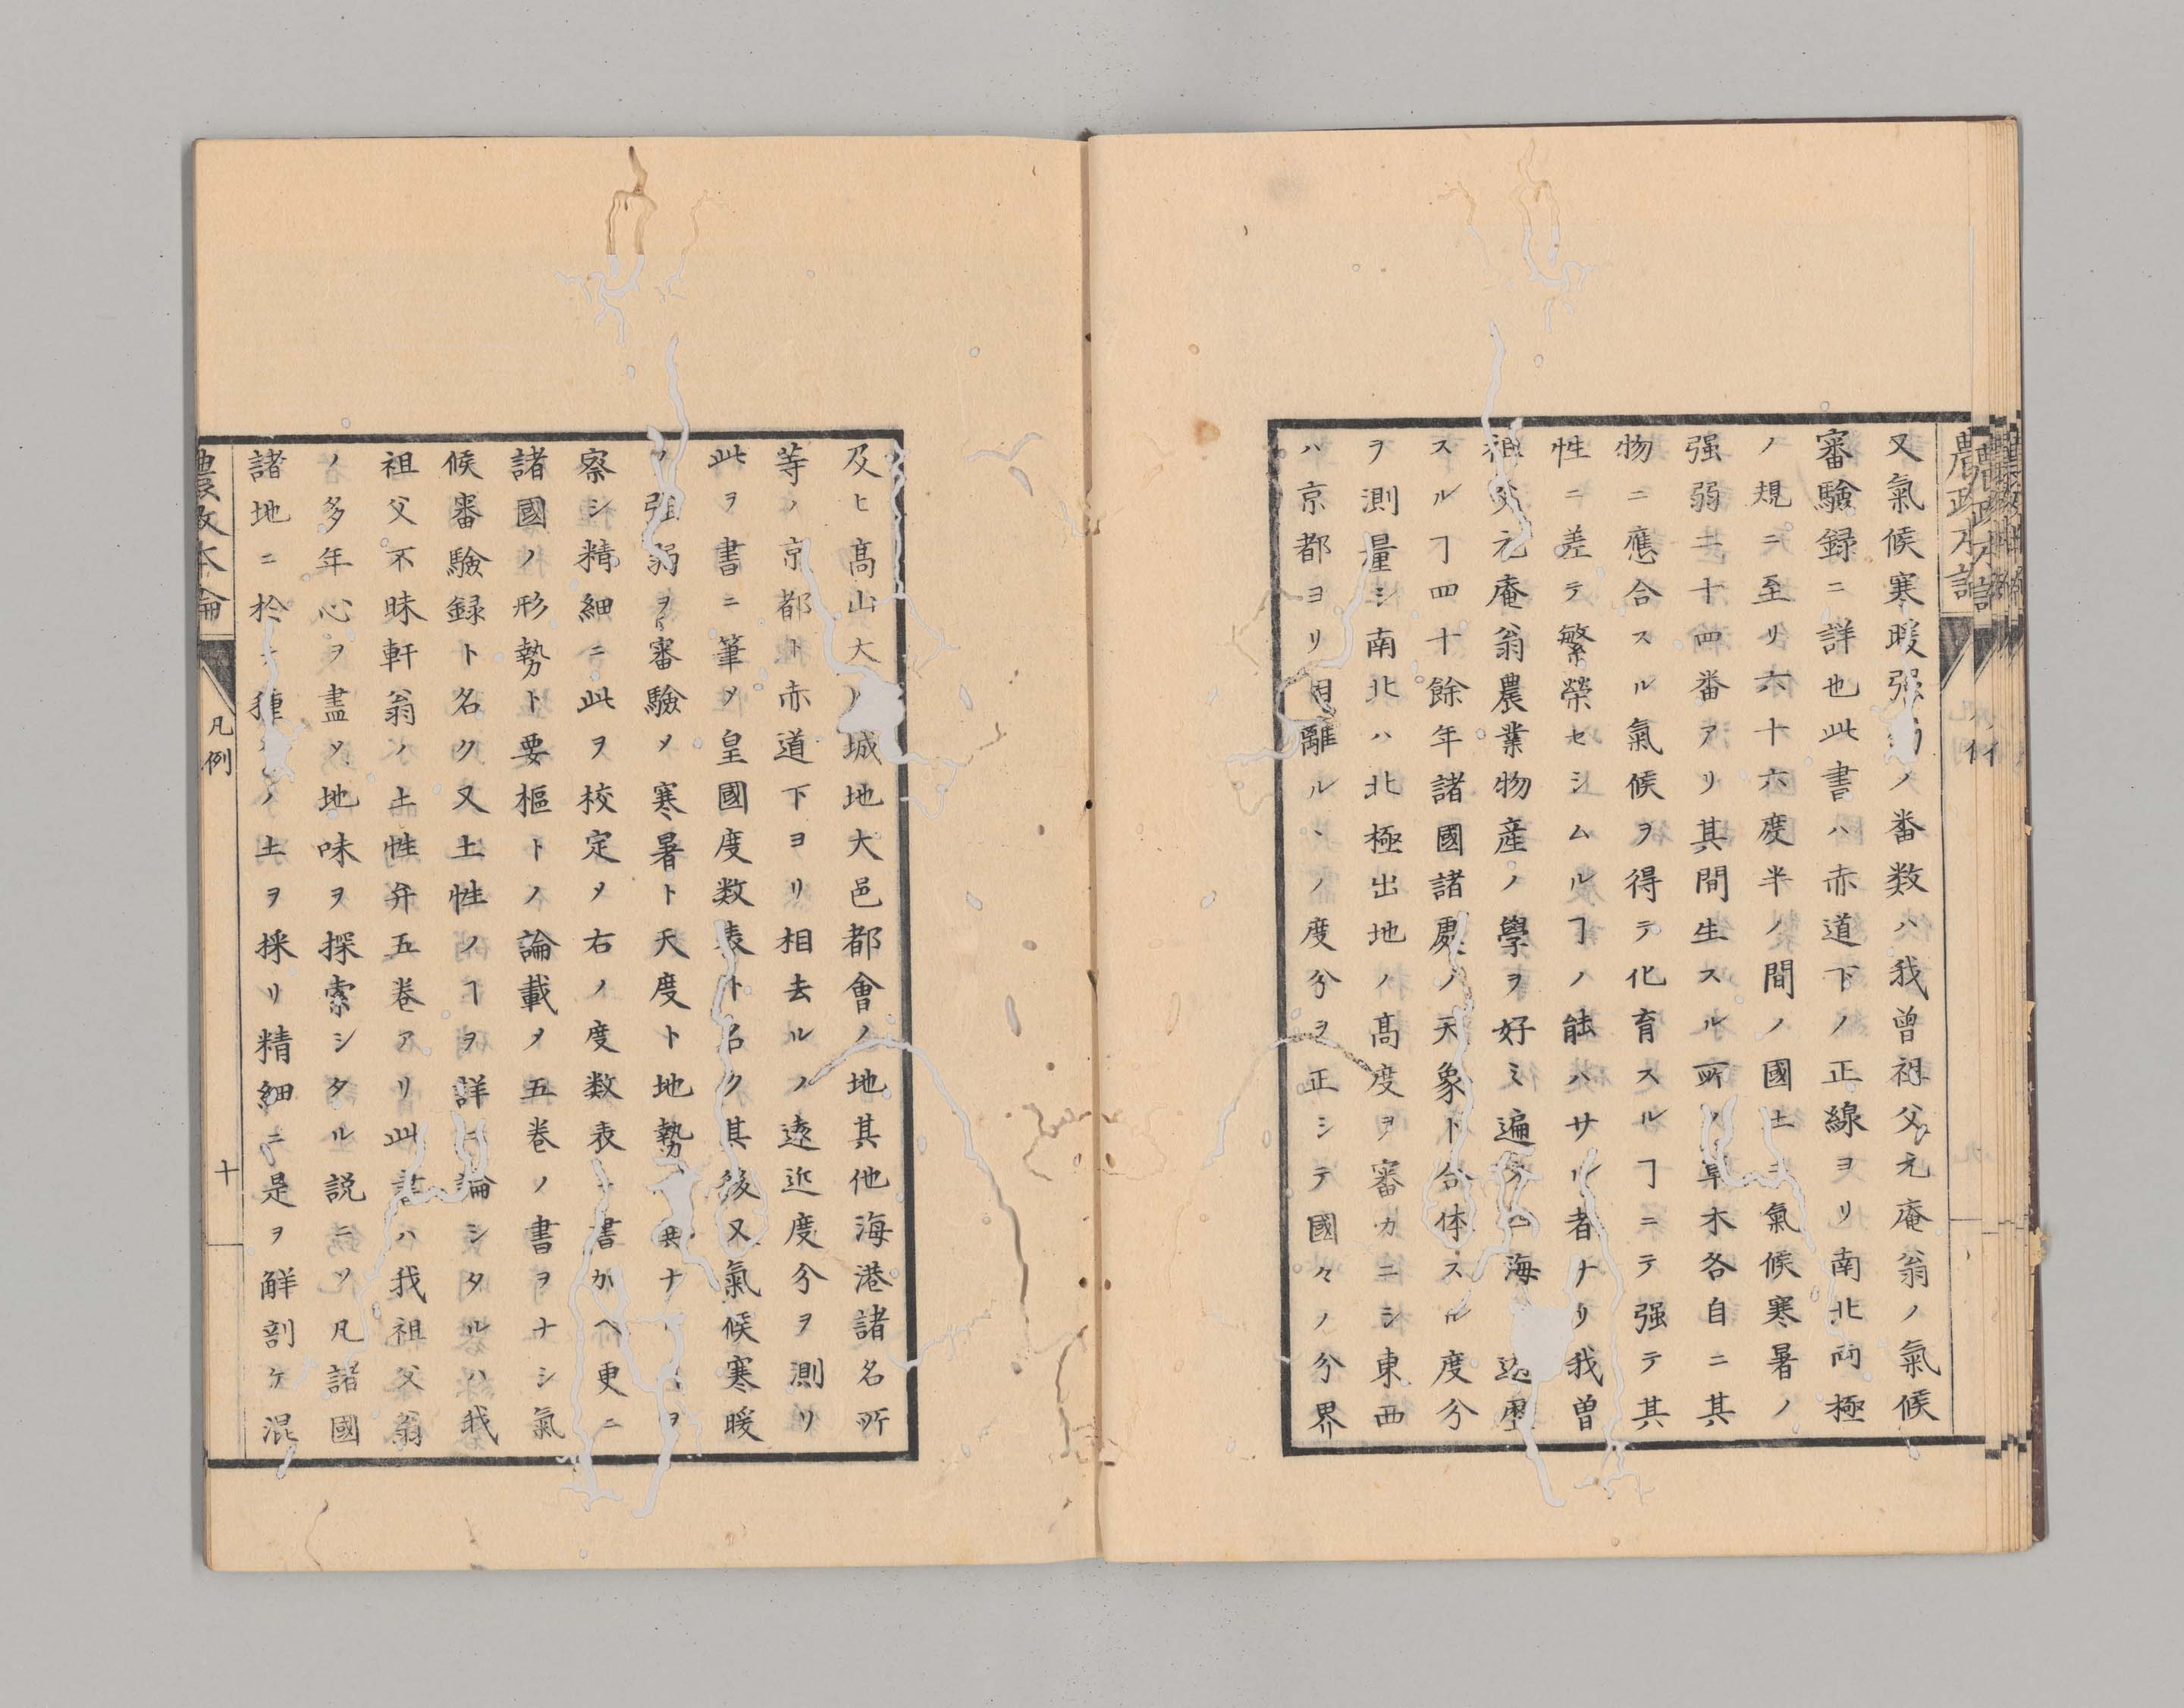 又氣候寒暖强弱ノ番数ハ我曾祖父元庵翁ノ氣候
審驗録ニ詳也此書ハ赤道下ノ正線ヨリ南北両極
ノ規ニ至リ六十六度半ノ間ノ國土ニ氣候寒暑ノ
强弱二十四番アリ其間生スル所ノ草木各自ニ其
物ニ應合スル氣候ヲ得テ化育スルヿニテ强テ其
性ニ差テ繁榮セシムルヿノ能ハサル者ナリ我曽
祖父元庵翁農業物産ノ學ヲ好ミ遍ク四海 遊歴
スルヿ四十餘年諸國諸處ノ天象ト合体スル度分
ヲ測量シ南北ハ北極出地ノ高度ヲ審カニシ東西
ハ京都ヨリ相離ルヽノ度分ヲ正シテ國々ノ分界
及ヒ髙山大 城地大邑都會ノ地其他海港諸名所
等ノ京都ト赤道下ヨリ相去ルノ遠近度分ヲ測リ
此ヲ書ニ筆メ皇國度数表ト名ク其後又氣候寒暖
ノ强弱ヲ審驗メ寒暑ト天度ト地勢 異ナ ヲ
察シ精細ニ此ヲ校定メ右ノ度数表 書加ヘ更ニ
諸國ノ形勢ト要樞トノ論載メ五巻ノ書ヲナシ氣
候審驗録ト名ク又土性ノヿヲ詳ニ論シタルハ我
祖父不昧軒翁ノ土性弁五巻アリ此書ハ我祖父翁
ノ多年心ヲ盡ソ地味ヲ探索シタル説ニソ凡諸國
諸地ニ於テ種々ノ土ヲ採リ精細ニ是ヲ觧剖ケ混
農政本論
凡例
十